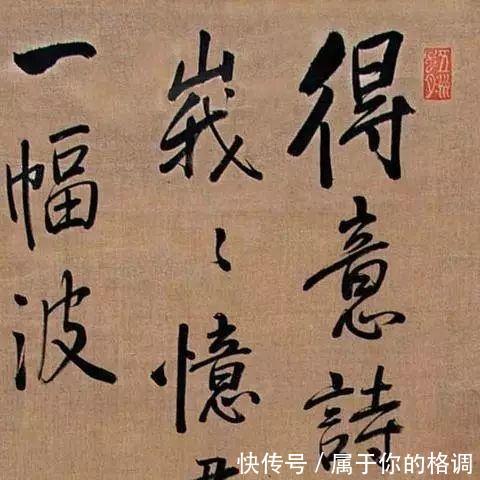 得意詩
峩〻憶
一幅波
快传号 / 属于你的格调